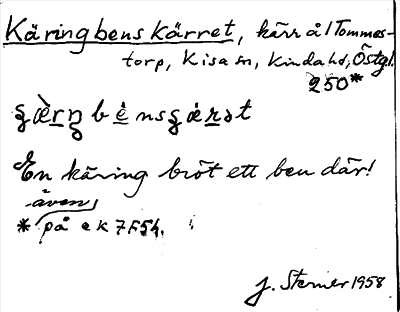 Käringbenskärret, kärr å/Tommes-
torp, Kisa sn, Kinda hd, Östgl.
250*
En käring bröt ett ben där!
även
* på ek 7F5h.
J. Sterner 1958